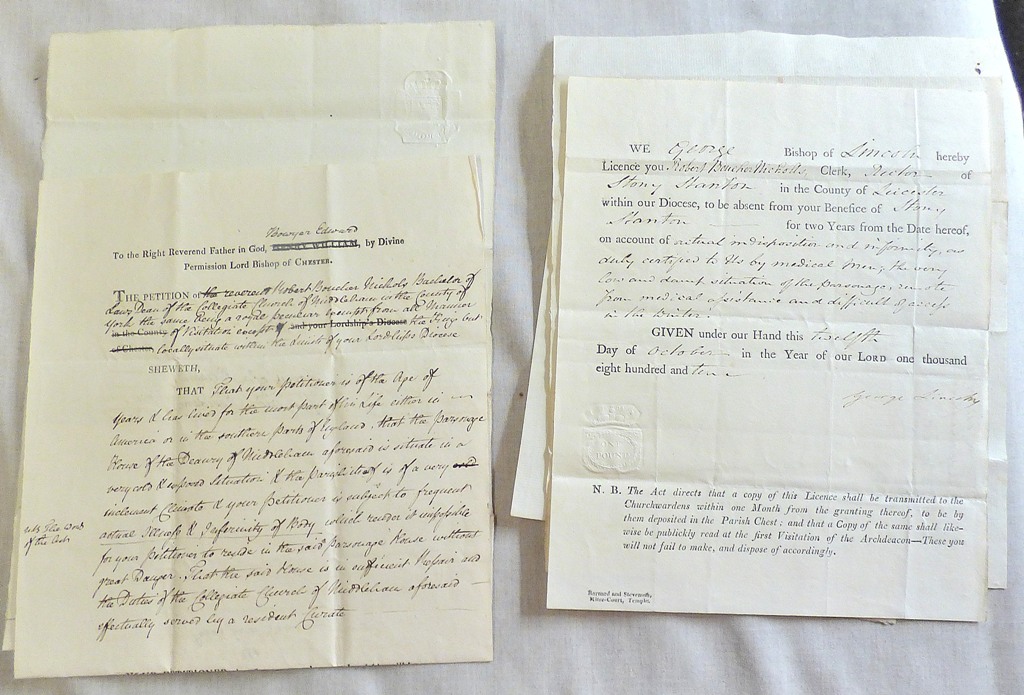 Bowyer Edward
To the Right Reverend Father in God, HENRY WILLIAM, by Divine
Permission Lord Bishop of CHESTER.
THE PETITION of the reverend Robert Boucher Nichols Bachelor of
Laws Dean of the Collegiate Church of Middleham in the County of
York the same being a royal peculiar exempt from all manner
in the County of Visitation except and your Lordship's Diocese the King but
of Chester, locally situate within the limits of your Lordships Diocese
SHEWETH,
THAT That your petitioner is of the Age of
years & has lived for the most part of his Life either in
America or in the southern parts of England, that the parsonage
House of the Deanry of Middleham aforesaid is situate in a
very cold & exposed situation & the parish itself is of a very cold
inclement Climate & your petitioner is subject to frequent
actual Illness & Infirmity of Body which render it impossible
for your petitioner to reside in the said parsonage House without
great Danger. That the said House is in sufficient Repair and
the Duties of the Collegiate Church of Middleham aforesaid
effectually served by a resident Curate
The word
of the Act
WE George Bishop of Lincoln hereby
Licence you Robert Boucher Nickolls, Clerk, Rector of
Stony Stanton in the County of Leicester
within our Diocese, to be absent from your Benefice of Stony
Stanton for two Years from the Date hereof,
on account of actual indisposition and infirmity, as
duly certified to Us by medical men; the very
low and damp situation of the parsonage, remote
from medical assistance and difficult of access
in the Winter.
GIVEN under our Hand this twelfth
Day of October in the Year of our LORD one thousand
eight hundred and ten
George Lincoln
POUND
N. B. The Act directs that a copy of this Licence shall be transmitted to the
Churchwardens within one Month from the granting thereof, to be by
them deposited in the Parish Chest; and that a Copy of the same shall like-
wise be publickly read at the first Visitation of the Archdeacon—These you
will not fail to make, and dispose of accordingly.
Barnard and
Court, Temple.